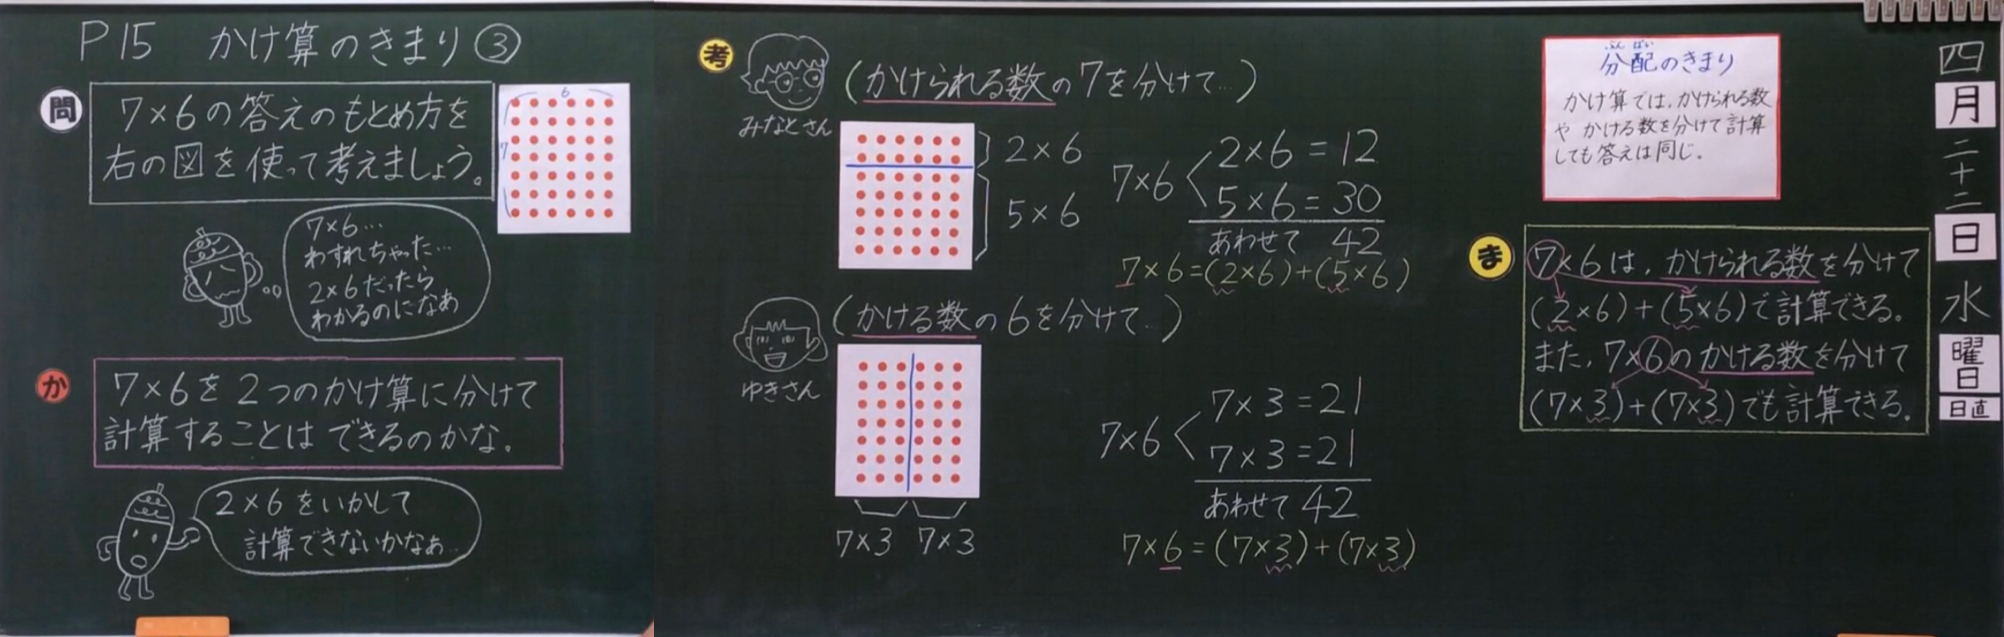 P15 かけ算のきまり③
問
7×6の答えのもとめ方を
右の図を使って考えましょう。
6
7
7×6…
わすれちゃった…
2×6だったら
わかるのになあ
か
7×6を2つのかけ算に分けて
計算することはできるのかな。
2×6をいかして
計算できないかなぁ
考
みなとさん
(かけられる数の7を分けて…)
2×6
5×6
7×6
2×6=12
5×6=30
あわせて 42
7×6=(2×6)+(5×6)
ゆきさん
(かける数の6を分けて…)
7×3 7×3
7×6
7×3=21
7×3=21
あわせて 42
7×6=(7×3)+(7×3)
ぶん ぱい
分配のきまり
かけ算では、かけられる数
や かける数を分けて計算
しても答えは同じ。
ま
7×6は、かけられる数を分けて
(2×6)+(5×6)で計算できる。
また、7×6のかける数を分けて
(7×3)+(7×3)でも計算できる。
四
月
二
十
二
日
水
曜
日
日直